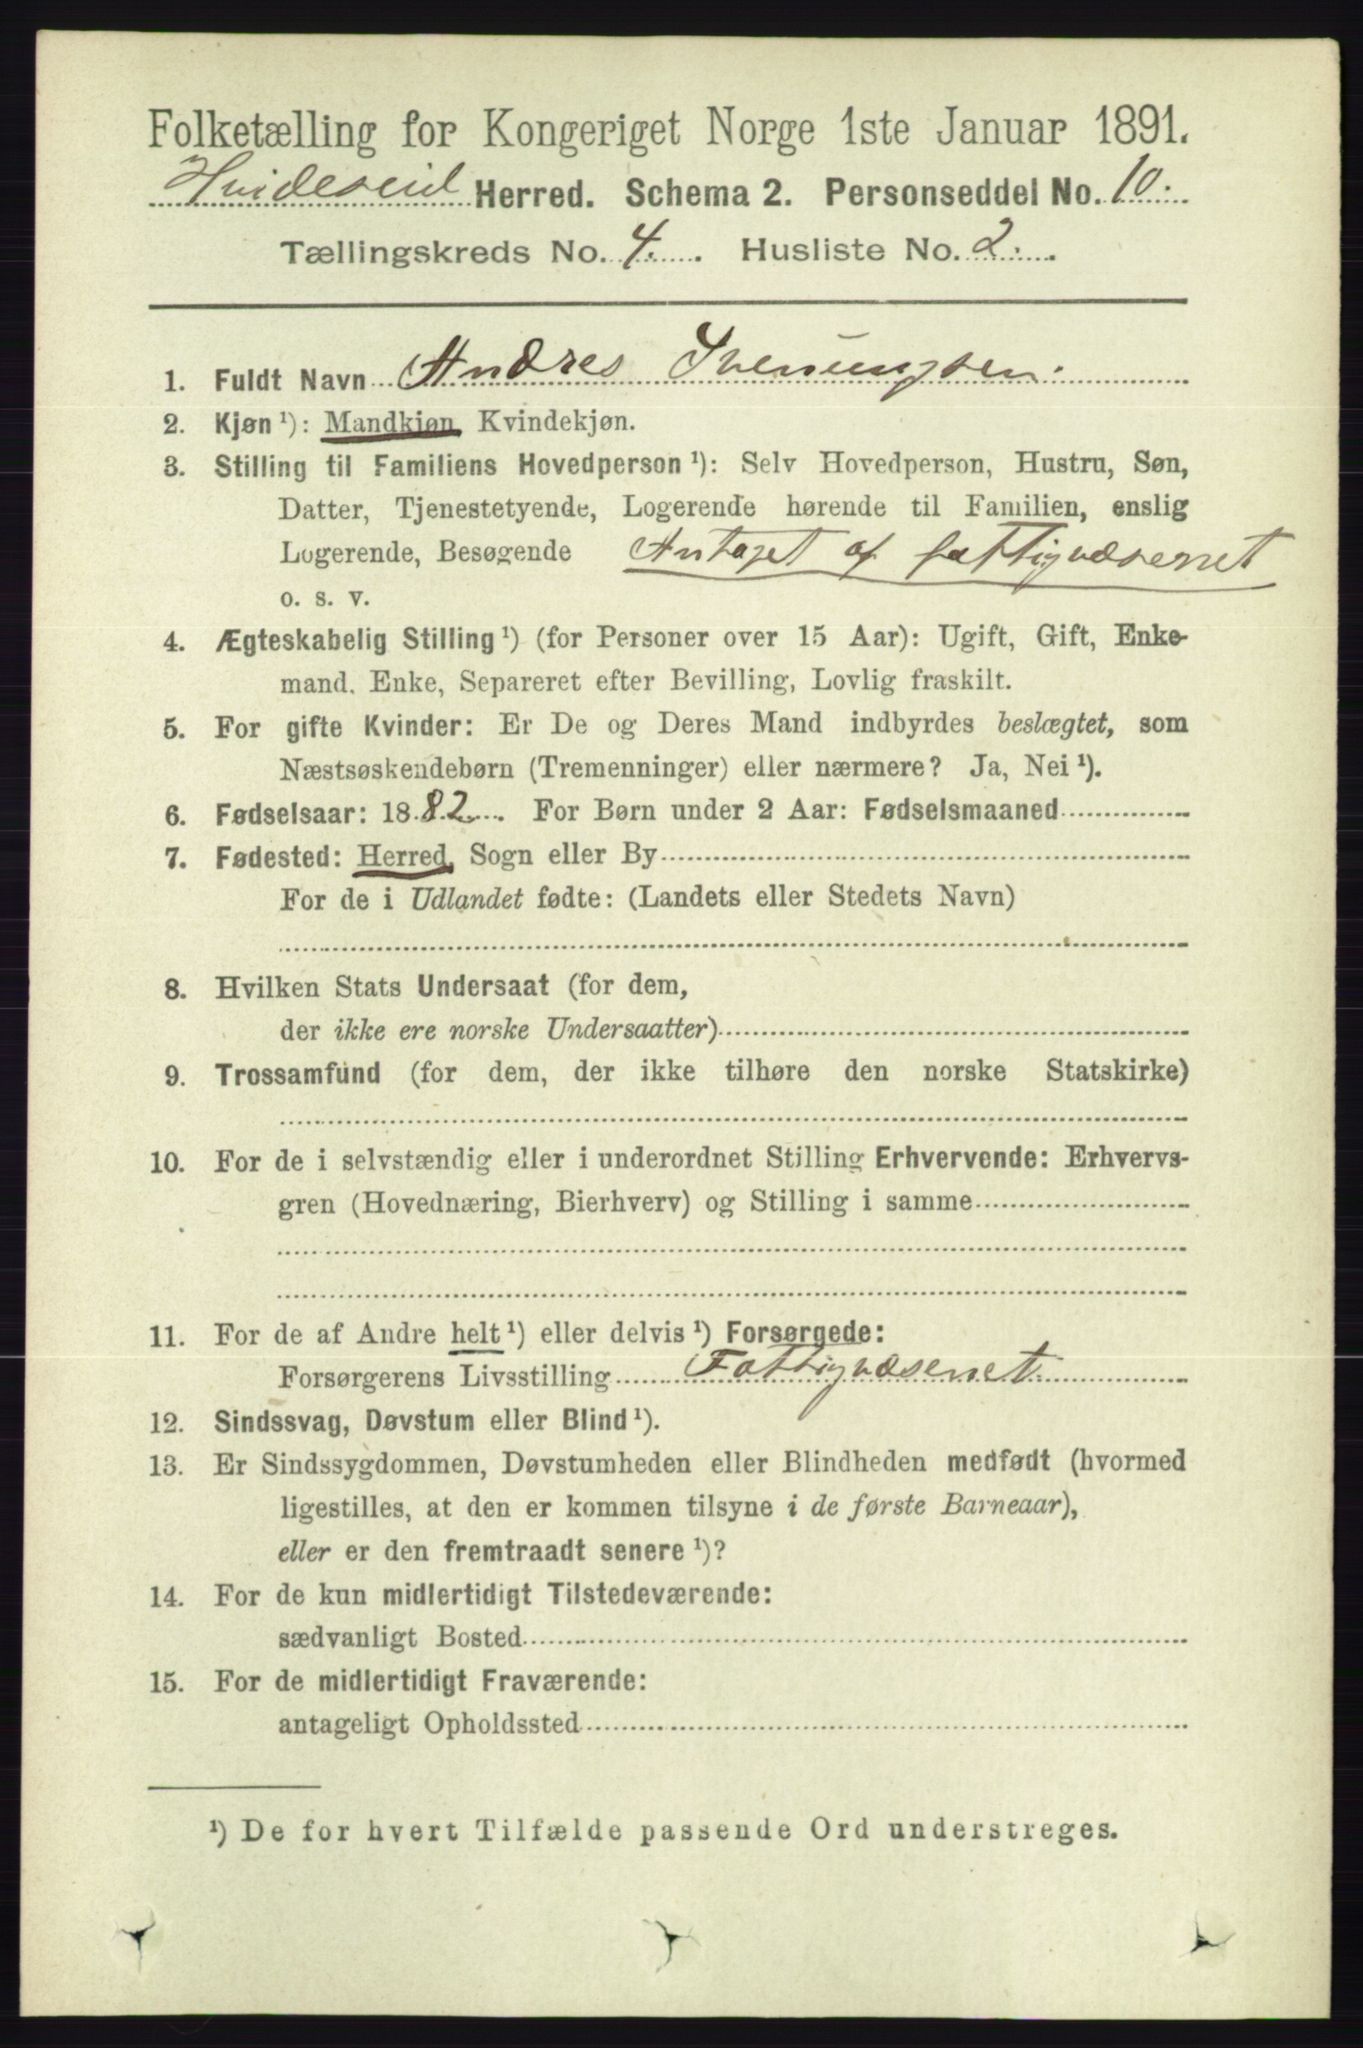 Folketælling for Kongeriget Norge 1ste Januar 1891.
Hvideseid Herred. Schema 2. Personseddel No. 10.
Tællingskreds No. 4. Husliste No. 2.
1. Fuldt Navn Andres Svenungsen.
2. Kjøn ¹): Mandkjøn, Kvindekjøn.
3. Stilling til Familiens Hovedperson ¹): Selv Hovedperson, Hustru, Søn,
Datter, Tjenestetyende, Logerende hørende til Familien, enslig
Logerende, Besøgende Antaget af fattigvæsenet
o. s. v.
4. Ægteskabelig Stilling ¹) (for Personer over 15 Aar): Ugift, Gift, Enke-
mand, Enke, Separeret efter Bevilling, Lovlig fraskilt.
5. For gifte Kvinder: Er De og Deres Mand indbyrdes beslægtet, som
Næstsøskendebørn (Tremenninger) eller nærmere? Ja, Nei ¹).
6. Fødselsaar: 1882. For Børn under 2 Aar: Fødselsmaaned
7. Fødested: Herred, Sogn eller By
For de i Udlandet fødte: (Landets eller Stedets Navn)
8. Hvilken Stats Undersaat (for dem,
der ikke ere norske Undersaatter)
9. Trossamfund (for dem, der ikke tilhøre den norske Statskirke)
10. For de i selvstændig eller i underordnet Stilling Erhvervende: Erhvervs-
gren (Hovednæring, Bierhverv) og Stilling i samme
11. For de af Andre helt ¹) eller delvis ¹) Forsørgede:
Forsørgerens Livsstilling Fattigvæsenet.
12. Sindssvag, Døvstum eller Blind ¹).
13. Er Sindssygdommen, Døvstumheden eller Blindheden medfødt (hvormed
ligestilles, at den er kommen tilsyne i de første Barneaar),
eller er den fremtraadt senere ¹)?
14. For de kun midlertidigt Tilstedeværende:
sædvanligt Bosted
15. For de midlertidigt Fraværende:
antageligt Opholdssted
¹) De for hvert Tilfælde passende Ord understreges.